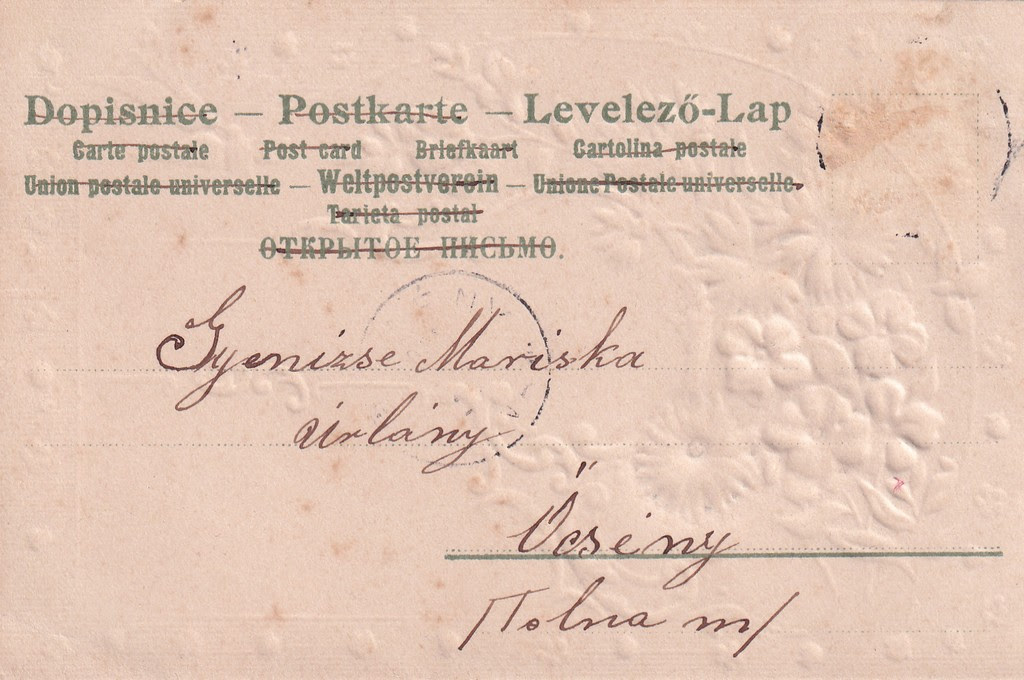 Dopisnice – Postkarte – Levelező-Lap
Carte postale Post card Briefkaart Cartolina postale
Union postale universelle – Weltpostverein – Unione Postale universelle.
Tarieta postal
ОТКРЫТОЕ ПИСЬМО.
Gyenizse Mariska
úrlány
Őcsény
/Tolna m/